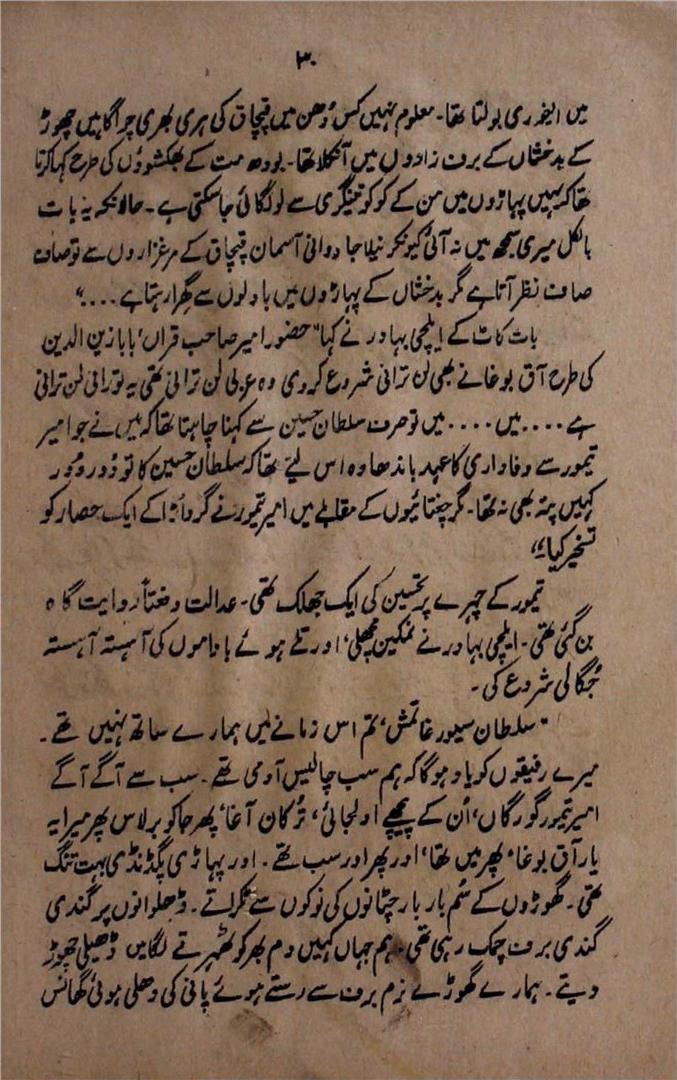 ۳۰
میں ایغوری بولتا تھا۔ معلوم نہیں کس دُھن میں قپچاق کی ہری بھری چراگاہیں چھوڑ
کے بدخشاں کے برف زادوں میں آنکلا تھا۔ بودھ مت کے بھکشوؤں کی طرح کہا کرتا
تھا کہ یہیں پہاڑوں میں من کے کو کو تینگری سے لو لگائی جا سکتی ہے۔ حالانکہ یہ بات
بالکل میری سمجھ میں نہ آئی کیونکہ نیلا جا ودانی آسمان قپچاق کے مرغزاروں سے تو صاف
صاف نظر آتا ہے مگر بدخشاں کے پہاڑوں میں بادلوں سے گھرا رہتا ہے ....“
بات کاٹ کے ایلچی بہادر نے کہا "حضور امیر صاحب قراں' بابا زین الدین
کی طرح آق بوغا نے بھی لن ترانی شروع کر دی وہ عربی لن ترانی تھی یہ تورانی لن ترانی
ہے .... میں .... میں تو صرف سلطان حسین سے کہنا چاہتا تھا کہ میں نے جو امیر
تیمور سے وفاداری کا عہد باندھا وہ اس لیے تھا کہ سلطان حسین کا تو دُور دُور
کہیں پتہ بھی نہ تھا۔ مگر چغتائیوں کے مقابلے میں امیر تیمور نے گرد اڑا کے ایک حصار کو
تسخیر کیا“
تیمور کے چہرے پر تحسین کی ایک جھلک تھی۔ عدالت دفعتاً روایت گاہ
بن گئی تھی۔ ایلچی بہادر نے نمکین مچھلی' اور تلے ہوئے باداموں کی آہستہ آہستہ
جُگالی شروع کی۔
"سلطان سیور غاتمش' تم اس زمانے میں ہمارے ساتھ نہیں تھے۔
میرے رفیقوں کو یاد ہوگا کہ ہم سب چالیس آدمی تھے۔ سب سے آگے آگے
امیر تیمور گورگاں' اُن کے پیچھے اولجائی' تُرکان آغا' پھر جاکو برلاس پھر میرا یہ
یار آق بوغا' پھر میں تھا' اور پھر اور سب تھے۔ اور پہاڑی پگڈنڈی بہت تنگ
تھی۔ گھوڑوں کے سُم بار بار چٹانوں کی نوکوں سے ٹکراتے۔ ڈھلوانوں پر گندی
گندی برف چمک رہی تھی۔ ہم جہاں کہیں دم بھر کو ٹھہرتے لگامیں ڈھیلی چھوڑ
دیتے۔ ہمارے گھوڑے نرم برف سے رستے ہوئے پانی کی دھلی ہوئی گھانس